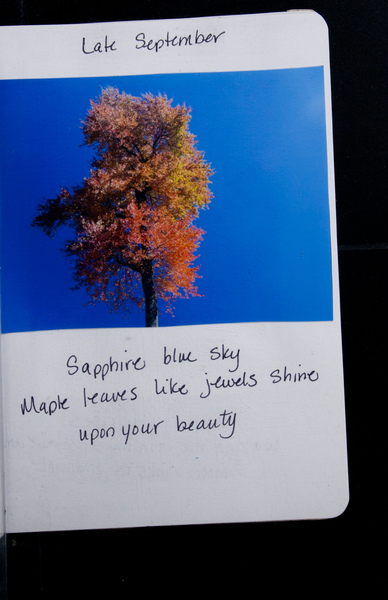 Late September
Sapphire blue sky
Maple leaves like jewels shine
upon your beauty